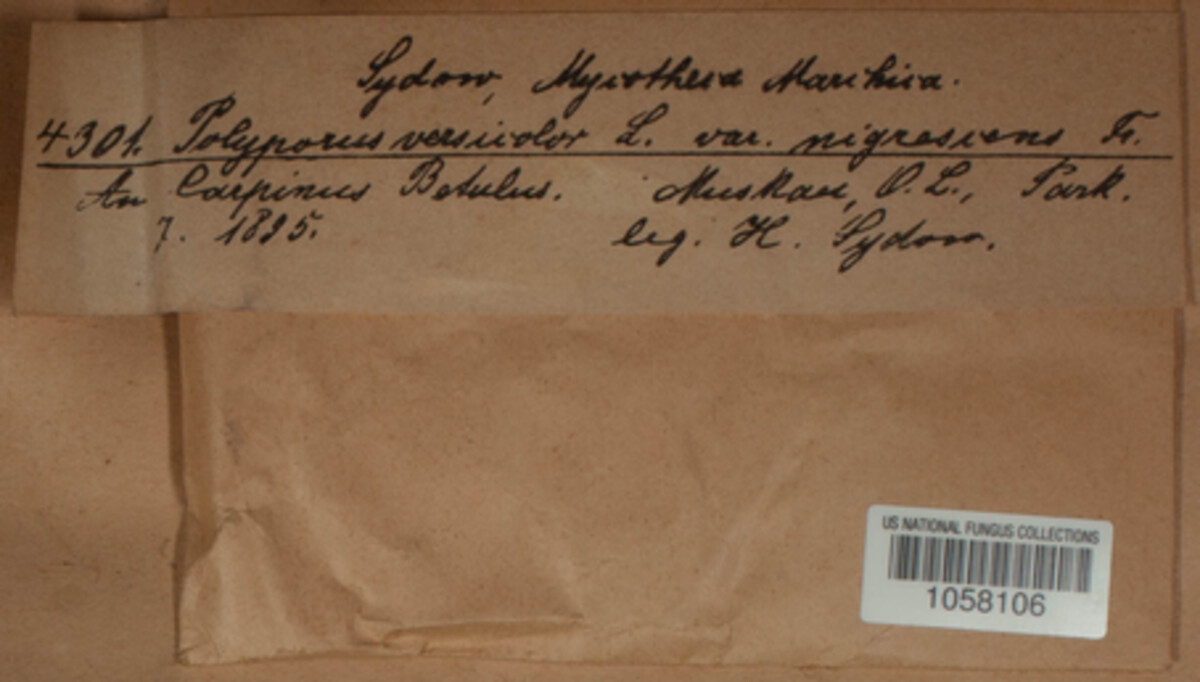 Sydow, Mycotheca Marchica.
4301. Polyporus versicolor L. var. nigrescens Fr.
An Carpinus Betulus. Muskau, O. L., Park.
7. 1895. leg. H. Sydow.
US NATIONAL FUNGUS COLLECTIONS
1058106